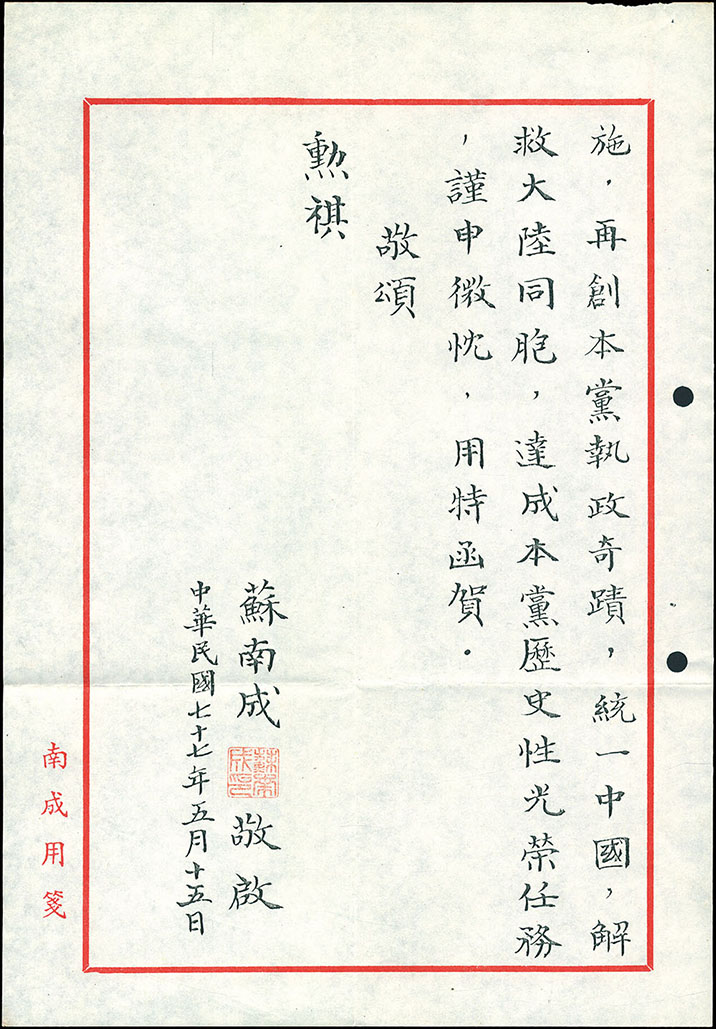 施，再創本黨執政奇蹟，統一中國，解
救大陸同胞，達成本黨歷史性光榮任務
，謹申微忱，用特函賀．
敬頌
勲祺
蘇南成
蘇南成印
敬啟
中華民國七十七年五月十五日
南成用箋